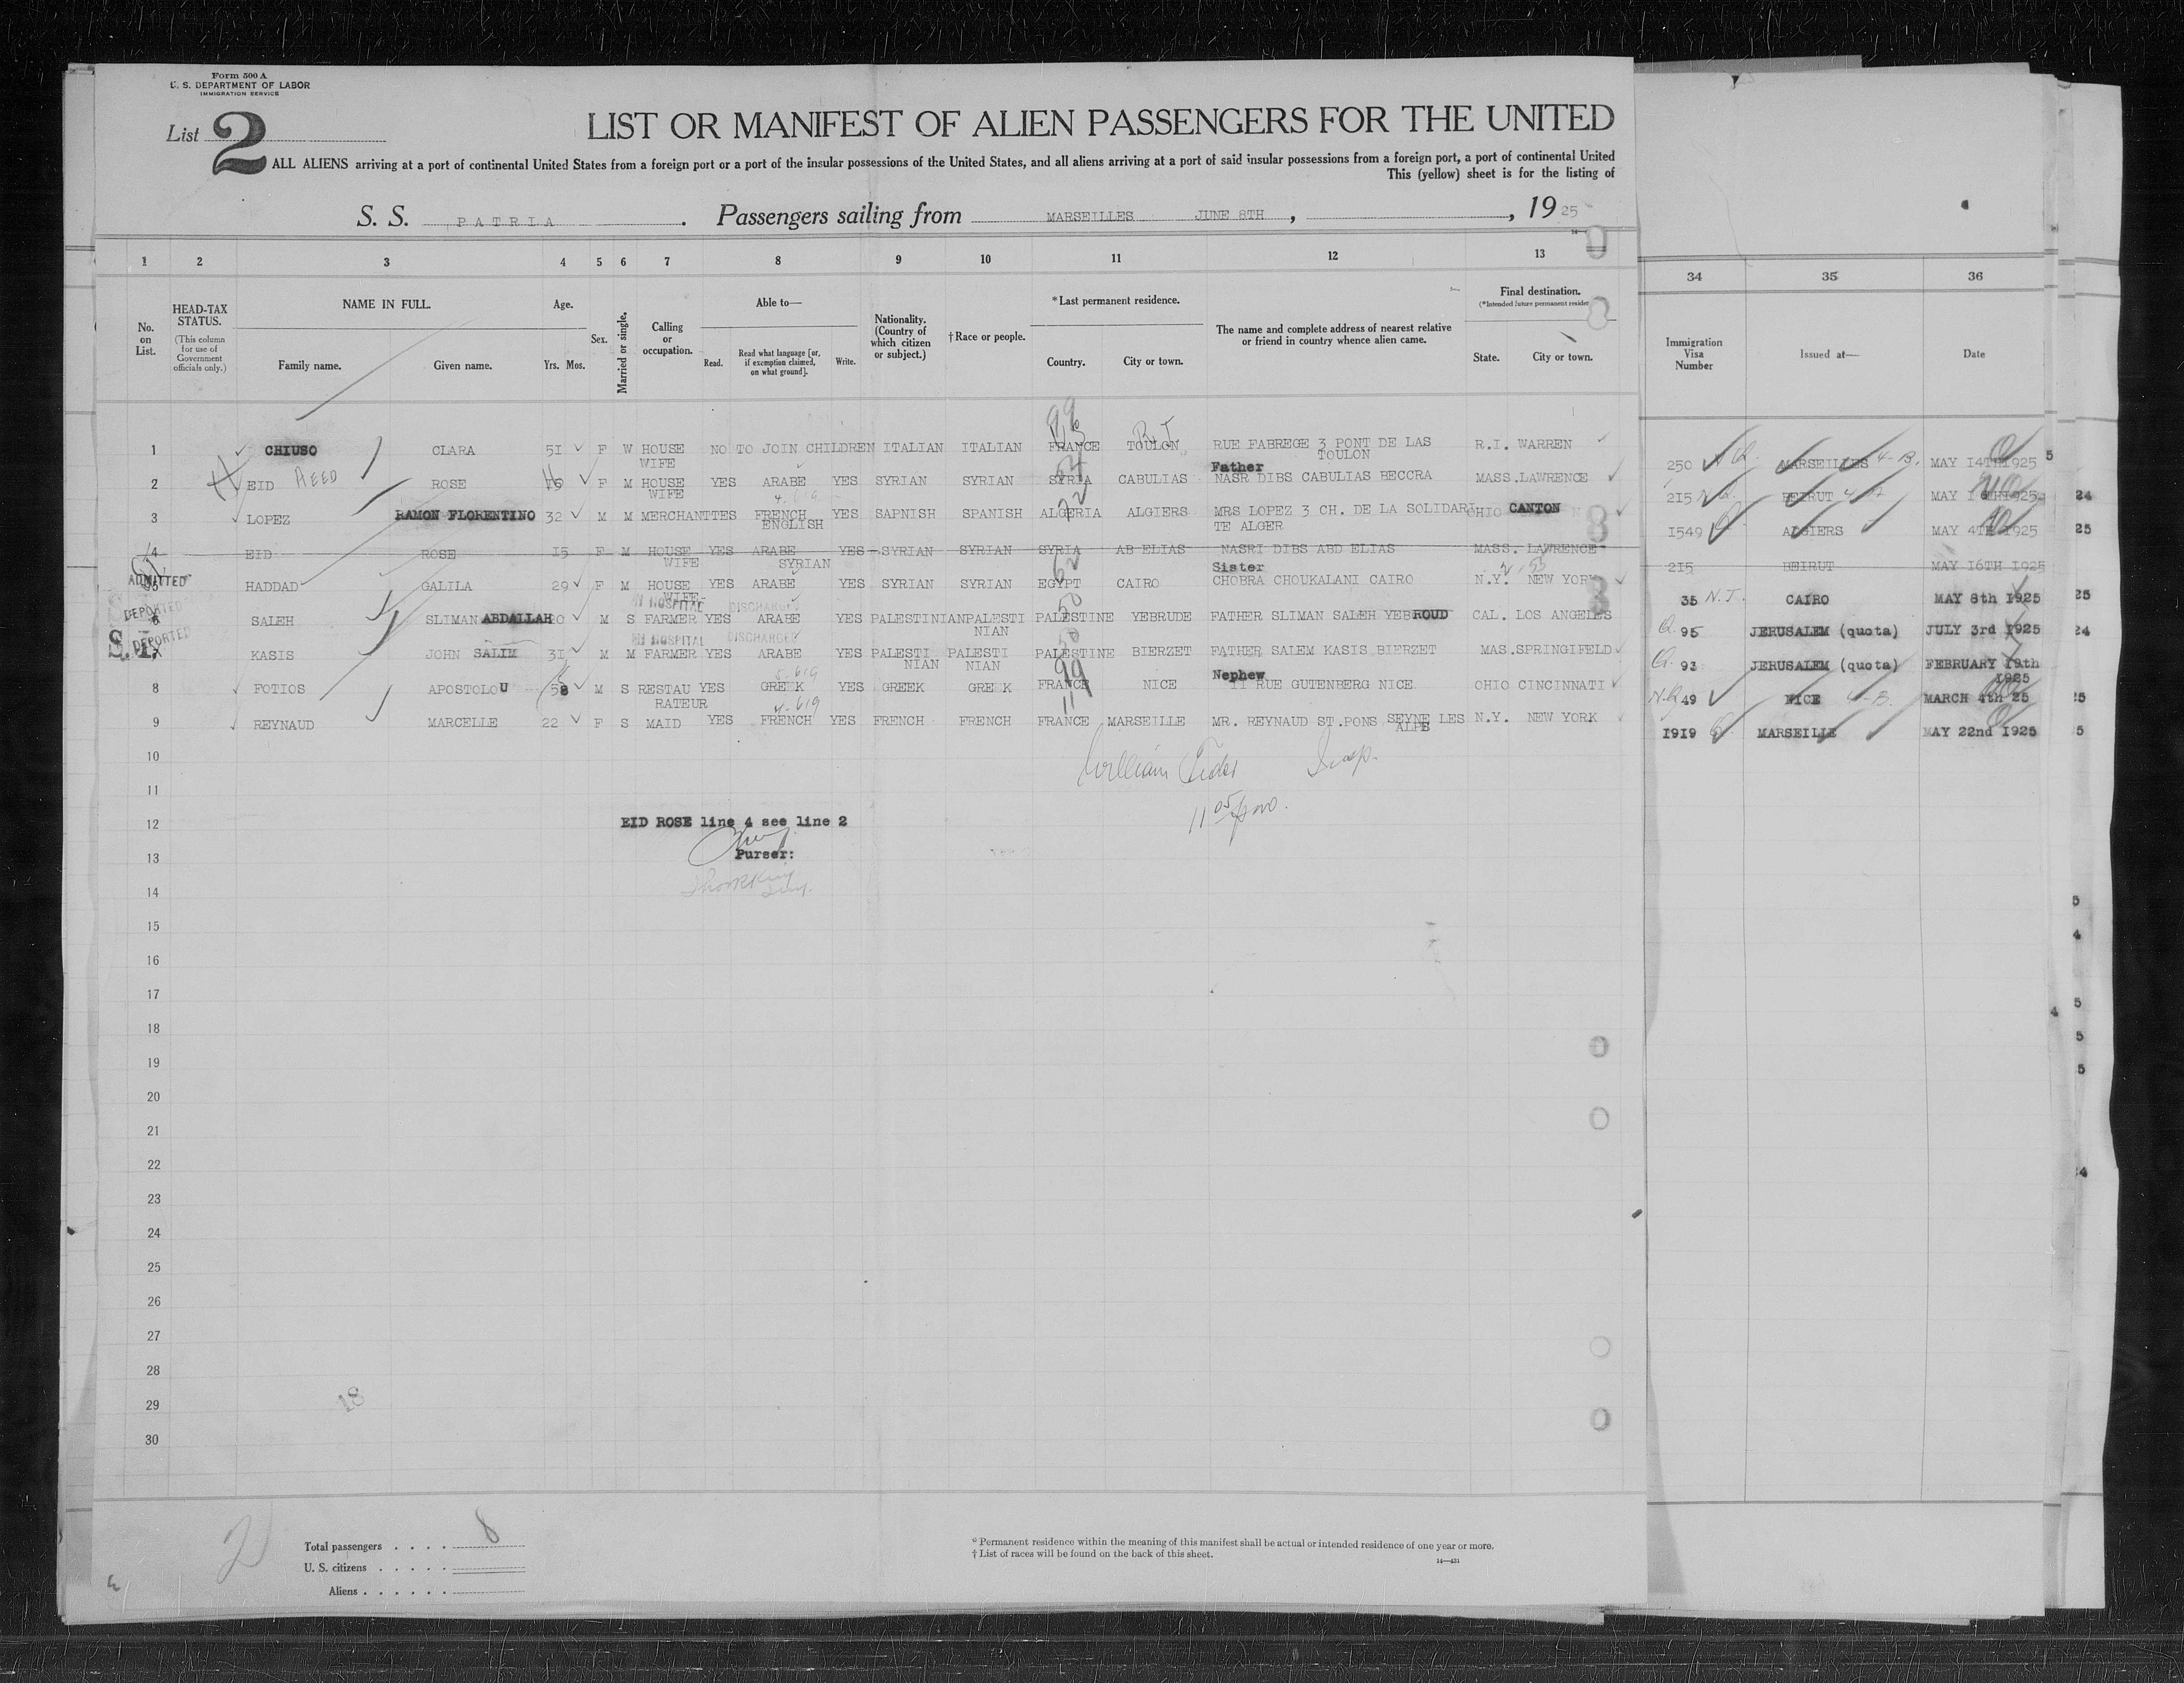 Form 500 A
U. S. DEPARTMENT OF LABOR
IMMIGRATION SERVICE
List 2
LIST OR MANIFEST OF ALIEN PASSENGERS FOR THE UNITED
ALL ALIENS arriving at a port of continental United States from a foreign port or a port of the insular possessions of the United States, and all aliens arriving at a port of said insular possessions from a foreign port, a port of continental United
This (yellow) sheet is for the listing of
S. S. PATRIA. Passengers sailing from MARSEILLES JUNE 8TH, , 1925
1 2 3 4 5 6 7 8 9 10 11 12 13 34 35 36
No. on List.
HEAD-TAX STATUS.
(This column for use of Government officials only.)
NAME IN FULL.
Family name. Given name.
Age.
Yrs. Mos.
Sex.
Married or single.
Calling or occupation.
Able to—
Read.
Read what language [or, if exemption claimed, on what ground].
Write.
Nationality. (Country of which citizen or subject.)
†Race or people.
*Last permanent residence.
Country. City or town.
The name and complete address of nearest relative or friend in country whence alien came.
Final destination.
(*Intended future permanent residen
State. City or town.
Immigration Visa Number
Issued at—
Date
1 CHIUSO CLARA 51 F W HOUSE WIFE NO TO JOIN CHILDREN ITALIAN ITALIAN FRANCE TOULON RUE FABREGE 3 PONT DE LAS TOULON R.I. WARREN 250 MARSEILLES 4-B. MAY 14TH 1925
2 EID REED ROSE F M HOUSE WIFE YES ARABE YES SYRIAN SYRIAN SYRIA CABULIAS Father NASR DIBS CABULIAS BECCRA MASS. LAWRENCE 215 BEIRUT MAY 16TH 1925
3 LOPEZ RAMON FLORENTINO 32 M M MERCHANT TES FRENCH ENGLISH YES SAPNISH SPANISH ALGERIA ALGIERS MRS LOPEZ 3 CH. DE LA SOLIDARI TE ALGER OHIO CANTON 1549 ALGIERS MAY 4TH 1925
4 EID ROSE 15 F M HOUSE WIFE YES ARABE SYRIAN YES SYRIAN SYRIAN SYRIA AB ELIAS NASRI DIBS ABD ELIAS MASS. LAWRENCE 215 BEIRUT MAY 16TH 1925
ADMITTED
5 HADDAD GALILA 29 F M HOUSE WIFE YES ARABE YES SYRIAN SYRIAN EGYPT CAIRO Sister CHOBRA CHOUKALANI CAIRO N.Y. NEW YORK 35 N.J. CAIRO MAY 8th 1925
DEPORTED
IN HOSPITAL DISCHARGED
6 SALEH SLIMAN ABDALLAH 20 M S FARMER YES ARABE YES PALESTINIAN PALESTI NIAN PALESTINE YEBRUDE FATHER SLIMAN SALEH YEBROUD CAL. LOS ANGELES Q. 95 JERUSALEM (quota) JULY 3rd 1925
DEPORTED
S. I.
IN HOSPITAL DISCHARGED
7 KASIS JOHN SALIM 31 M M FARMER YES ARABE YES PALESTI NIAN PALESTI NIAN PALESTINE BIERZET FATHER SALEM KASIS BIERZET MAS. SPRINGIFELD Q. 93 JERUSALEM (quota) FEBRUARY 19th 1925
8 FOTIOS APOSTOLOU 58 M S RESTAU RATEUR YES GREEK YES GREEK GREEK FRANCE NICE Nephew 11 RUE GUTENBERG NICE OHIO CINCINNATI N.Q 49 NICE 4-B. MARCH 4th 25
9 REYNAUD MARCELLE 22 F S MAID YES FRENCH YES FRENCH FRENCH FRANCE MARSEILLE MR. REYNAUD ST. PONS SEYNE LES ALPE N.Y. NEW YORK 1919 MARSEILLE MAY 22nd 1925
10
11
12 EID ROSE line 4 see line 2
13 Purser:
14
15
16
17
18
19
20
21
22
23
24
25
26
27
28
29
30
18
Total passengers . . . . 8
U. S. citizens . . . . .
Aliens . . . . . .
2
* Permanent residence within the meaning of this manifest shall be actual or intended residence of one year or more.
† List of races will be found on the back of this sheet.
14—431